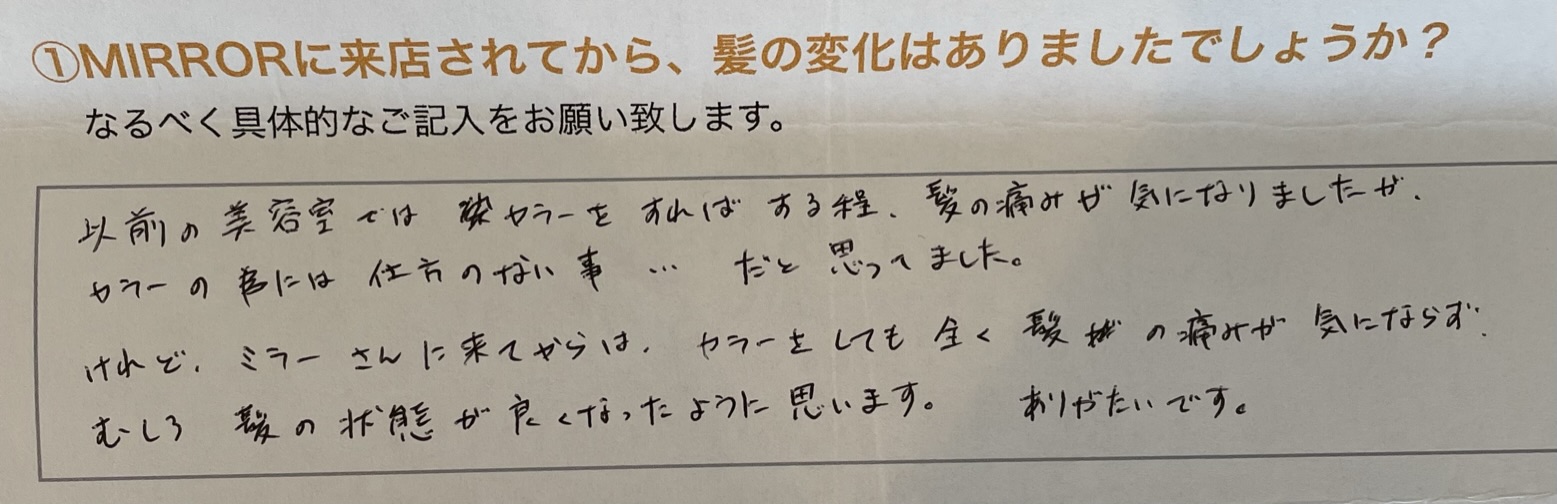 ①MIRRORに来店されてから、髪の変化はありましたでしょうか？
なるべく具体的なご記入をお願い致します。
以前の美容室では カラーをすればする程、髪の痛みが気になりましたが、
カラーの為には仕方のない事 … だと思ってました。
けれど、ミラーさんに来てからは、カラーをしても全く髪の痛みが気にならず、
むしろ髪の状態が良くなったように思います。 ありがたいです。